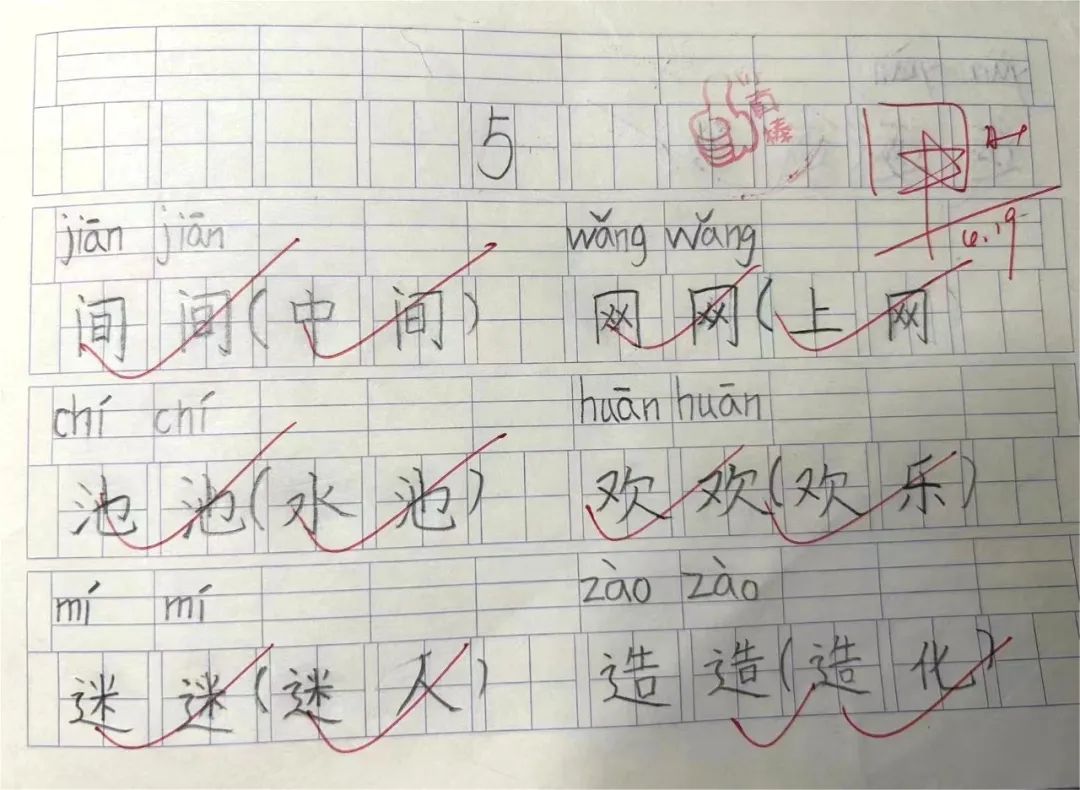 5
真棒
6.19
jiān jiān wǎng wǎng
间 间(中 间) 网 网(上 网
chí chí huān huān
池 池(水 池) 欢 欢(欢 乐)
mí mí zào zào
迷 迷(迷 人) 造 造(造 化)